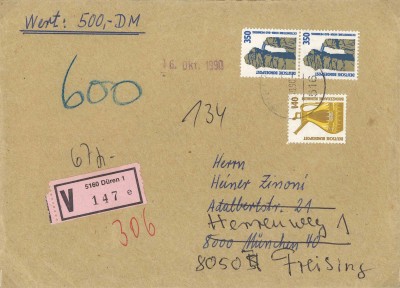 Wert: 500,-DM
350
350
DEUTSCHE BUNDESPOST
DEUTSCHE BUNDESPOST
6. Okt. 1990
600
516
140
DEUTSCHE BUNDESPOST
134
67,-
V
5160 Düren 1
147
306
Herrn
Heiner Zinoni
Adalbertstr. 21
Herrenweg 1
8000 München 40
8050 Freising